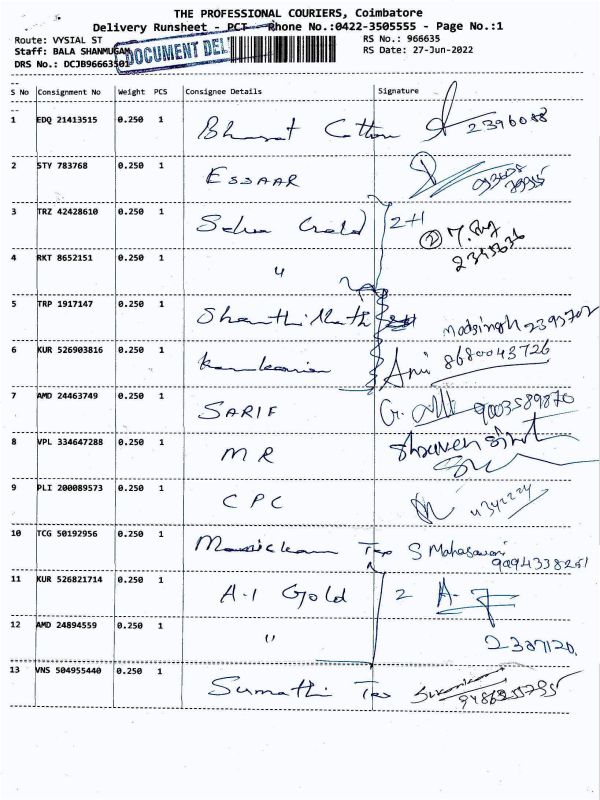 THE PROFESSIONAL COURIERS, Coimbatore
Delivery Runsheet - PCT - Phone No.:0422-3505555 - Page No.:1
Route: VYSIAL ST RS No.: 966635
Staff: BALA SHANMUGAM DOCUMENT DEL RS Date: 27-Jun-2022
DRS No.: DCJB96663501
S No Consignment No Weight PCS Consignee Details Signature
1 EDQ 21413515 0.250 1 Bharat Cotton 2396088
2 STY 783768 0.250 1 ESSAAR
3 TRZ 42428610 0.250 1 Selva Gold 2+1
4 RKT 8652151 0.250 1 "
2345636
5 TRP 1917147 0.250 1 Shanthi Nath
6 KUR 526903816 0.250 1 8680043726
7 AMD 24463749 0.250 1 SARIF 9003589870
8 VPL 334647288 0.250 1 MR
9 PLI 200089573 0.250 1 CPC
10 TCG 50192956 0.250 1 Tex S Mahasawari
11 KUR 526821714 0.250 1 A-1 Gold 2
12 AMD 24894559 0.250 1 "
13 VNS 504955440 0.250 1 Sumathi Tex